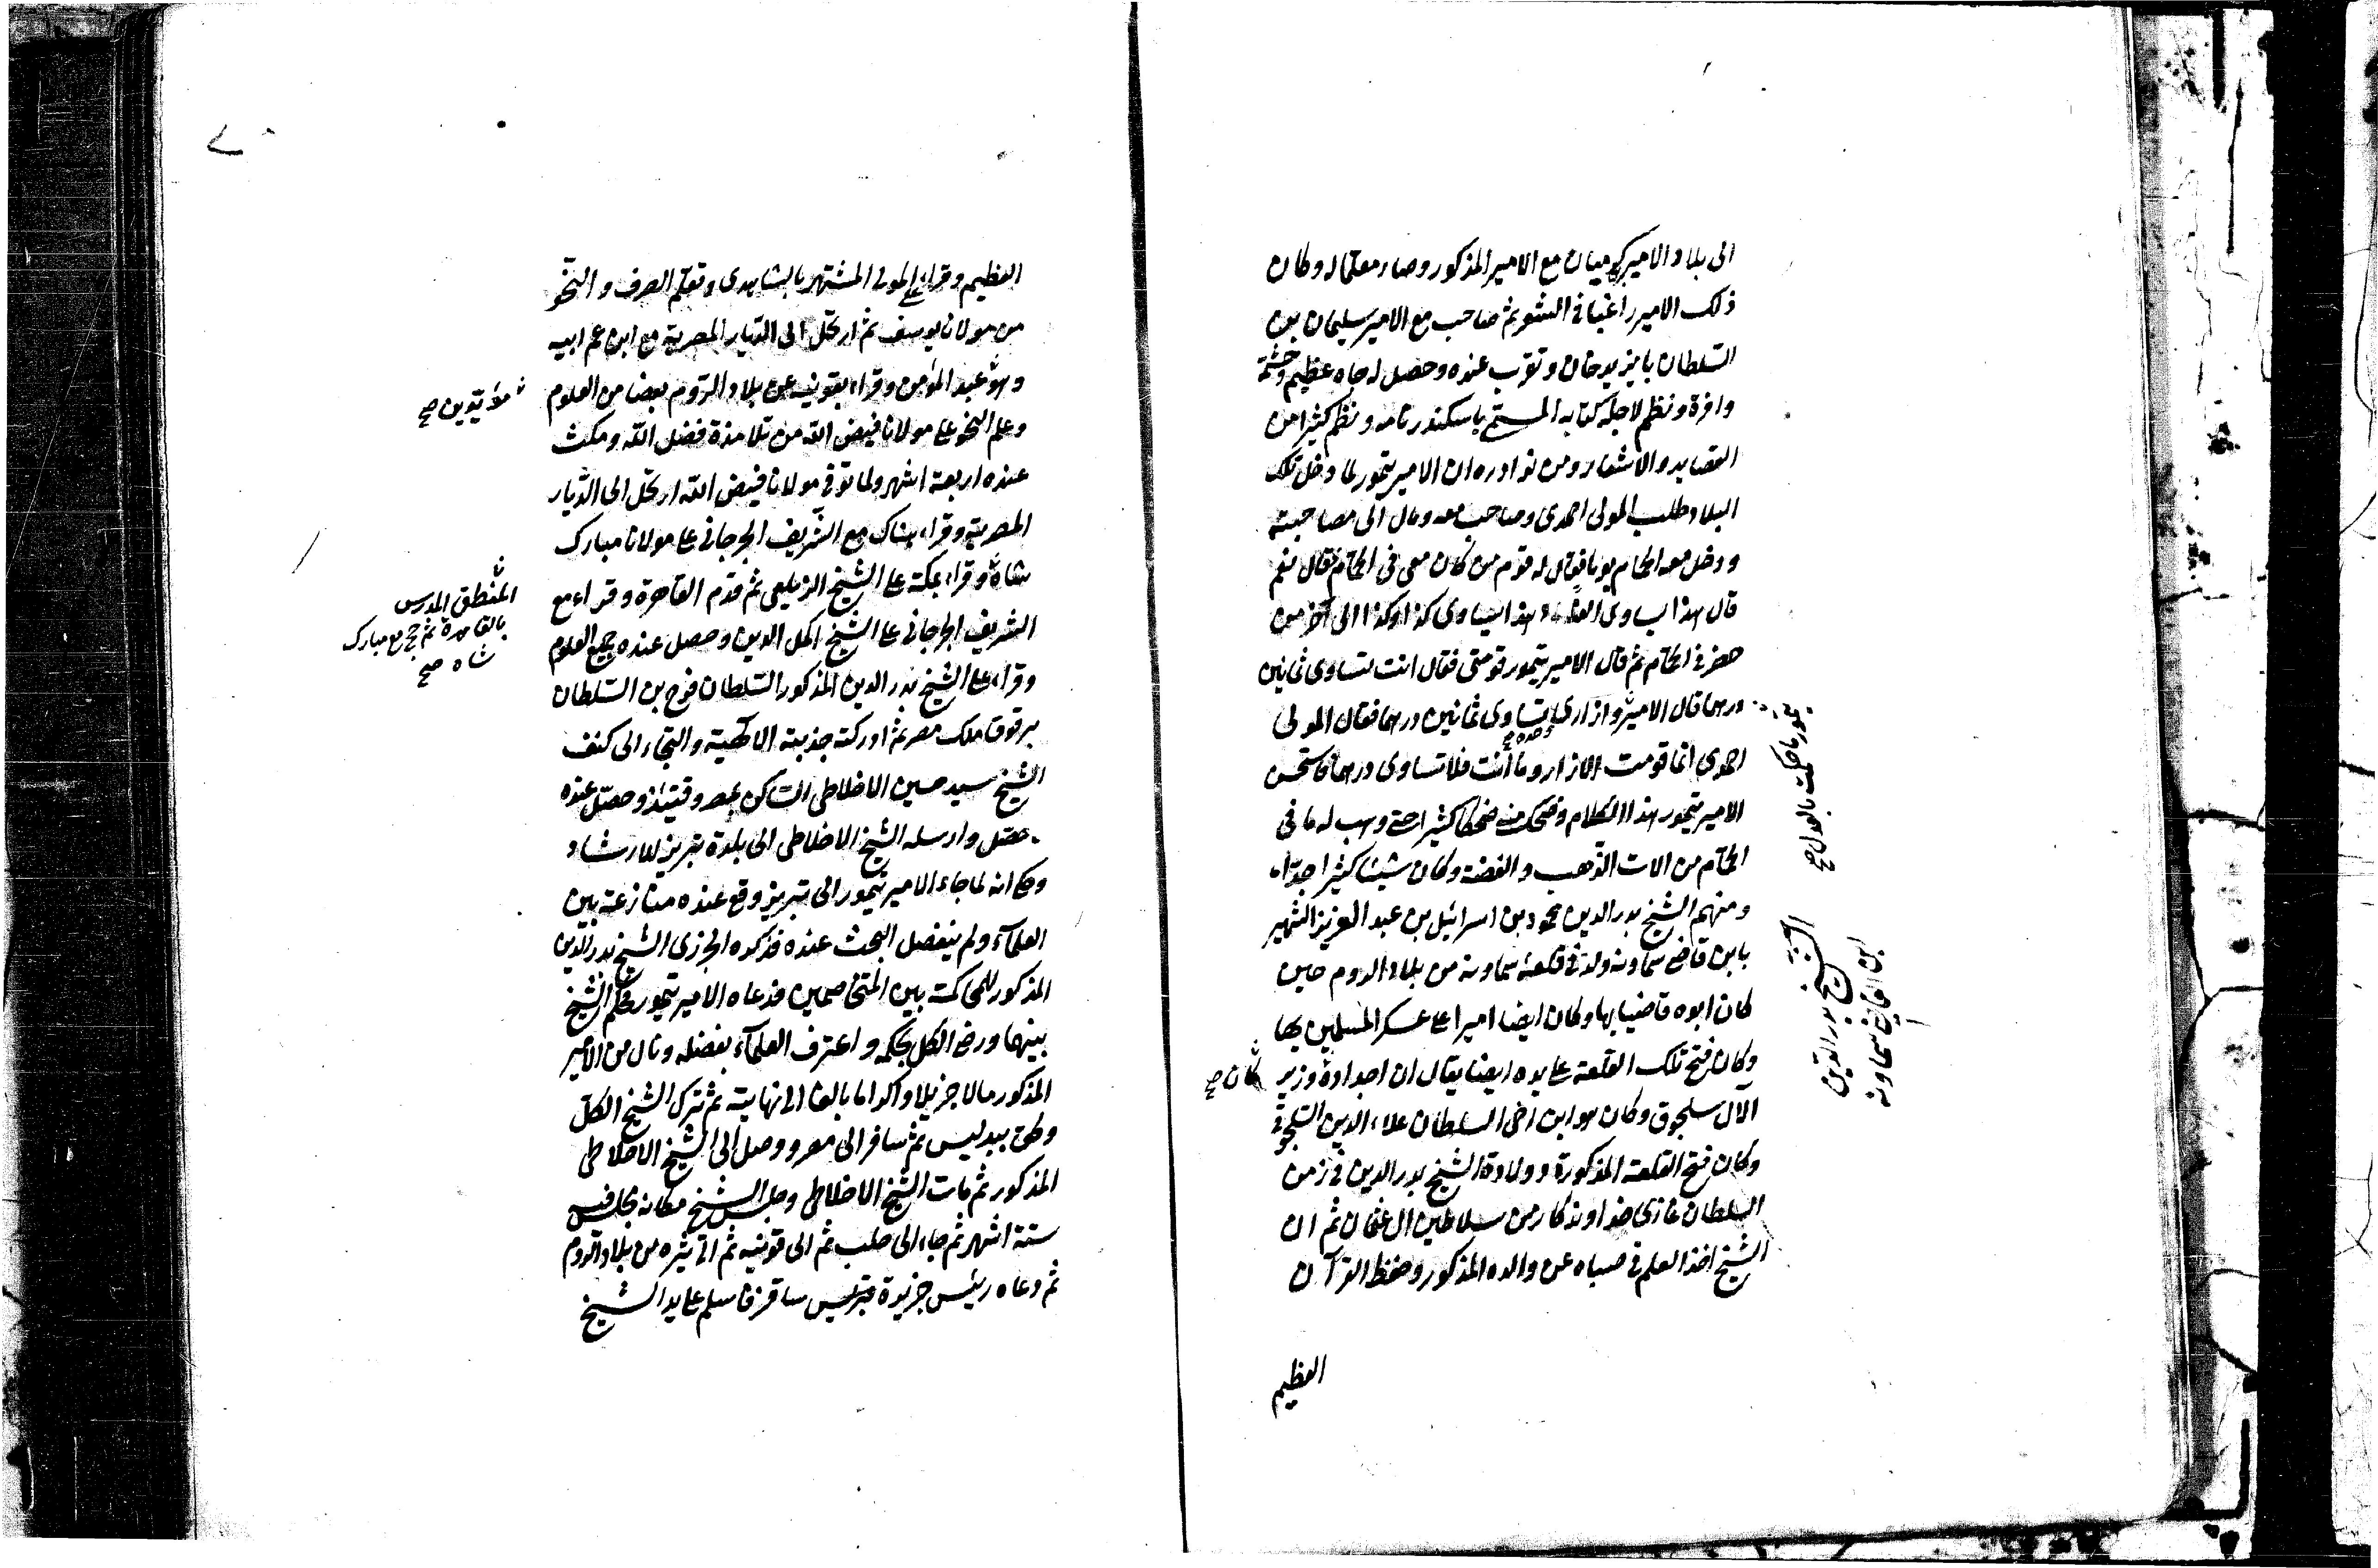 الى بلاد الامير كرميان مع الامير المذكور وصار معلما له وكان
ذلك الامير راغبا فى الشعر ثم صاحب مع الامير سليمان بن
السلطان بايزيد خان وتقرب عنده وحصل له جاه عظيم وحشمة
وافرة ونظم لاجله كتابه المسمى باسكندر نامه ونظم كثيرا من
القصايد والاشعار ومن نوادره ان الامير تيمور لما دخل تلك
البلاد طلب المولى احمدى وصاحب معه ومال الى مصاحبته
ودخل معه الحمام يوما فقال له قوم من كان معى فى الحمام فقال نعم
قال هذا يساوى الفا وهذا يساوى كذا وكذا الى آخر من
حضر فى الحمام ثم قال الامير تيمور قومنى فقال انت تساوى ثمانين
درهما قال الامير وازارى يساوى ثمانين درهما فقال المولى
وحده صح
احمدى انما قومت الازار وما أنت فلا تساوى درهما فاستحسن
الامير تيمور هذا الكلام وضحك منه ضحكا كثيرا حتى وهب له ما فى
الحمام من الات الذهب والفضة وكان شيئا كثيرا جدا
ومنهم الشيخ بدر الدين محمود بن اسرائيل بن عبد العزيز الشهير
بابن قاضى سماونه ولد فى قلعة سماونه من بلاد الروم حين
كان ابوه قاضيا بها وكان ايضا اميرا على عسكر المسلمين بها
وكان فتح تلك القلعة على يده ايضا يقال ان اجداده وزير
كان صح
الآل سلجوق وكان هو ابن اخى السلطان علاء الدين السلجوقى
وكان فتح القلعة المذكورة وولادة الشيخ بدر الدين فى زمن
السلطان غازى خداوندكار من سلاطين ال عثمان ثم ان
الشيخ اخذ العلم فى صباه عن والده المذكور وحفظ القرآن
العظيم
تيمور ما حكمت بالعدل صح
الشيخ بدر الدين
ابن القاضى سماونه
٧
العظيم وقراء على المولى المشتهر بالشاهدى وتعلم الصرف والنحو
من مولانا يوسف ثم ارتحل الى الديار المصرية مع ابن عم ابيه
وهو عبد المؤمن وقراء بقونيه من بلاد الروم بعضا من العلوم
وعلم النحو على مولانا فيض الله من تلامذة فضل الله ومكث
عنده اربعة اشهر ولما توفى مولانا فيض الله ارتحل الى الديار
المصرية وقراء هناك مع الشريف الجرجانى على مولانا مبارك
المنطقى المدرس
بالقاهرة ثم حج مع مبارك
شاه صح
شاه وقراء بمكة على الشيخ الزيلعى ثم قدم القاهرة وقراء مع
الشريف الجرجانى على الشيخ اكمل الدين وحصل عنده جميع العلوم
وقراء على الشيخ بدر الدين المذكور السلطان فرج بن السلطان
برقوق ملك مصر ثم ادركته جذبة الالهية والتجاء الى كنف
الشيخ سيد حسين الاخلاطى الساكن بمصر وقتيئذ وحصل عنده
ما حصل وارسله الشيخ الاخلاطى الى بلدة تبريز للارشاد
وحكى انه لما جاء الامير تيمور الى تبريز وقع عنده منازعة بين
العلماء ولم ينفصل البحث عنده فذكره الجزرى الشيخ بدر الدين
المذكور للمحاكمة بين المتخاصمين فدعاه الامير تيمور فحكم الشيخ
بينهما ورضى الكل بحكمه واعترف العلماء بفضله ونال من الامير
المذكور مالا جزيلا واكراما بالغا الى نهاية ثم ترك الشيخ الكل
ولحق ببدليس ثم سافر الى مصر ووصل الى الشيخ الاخلاطى
المذكور ثم مات الشيخ الاخلاطى وجلس الشيخ مكانه
ستة اشهر ثم جاء الى حلب ثم الى قونيه ثم الى تيره من بلاد الروم
ثم دعاه رئيس جزيرة ساقز فاسلم على يد الشيخ